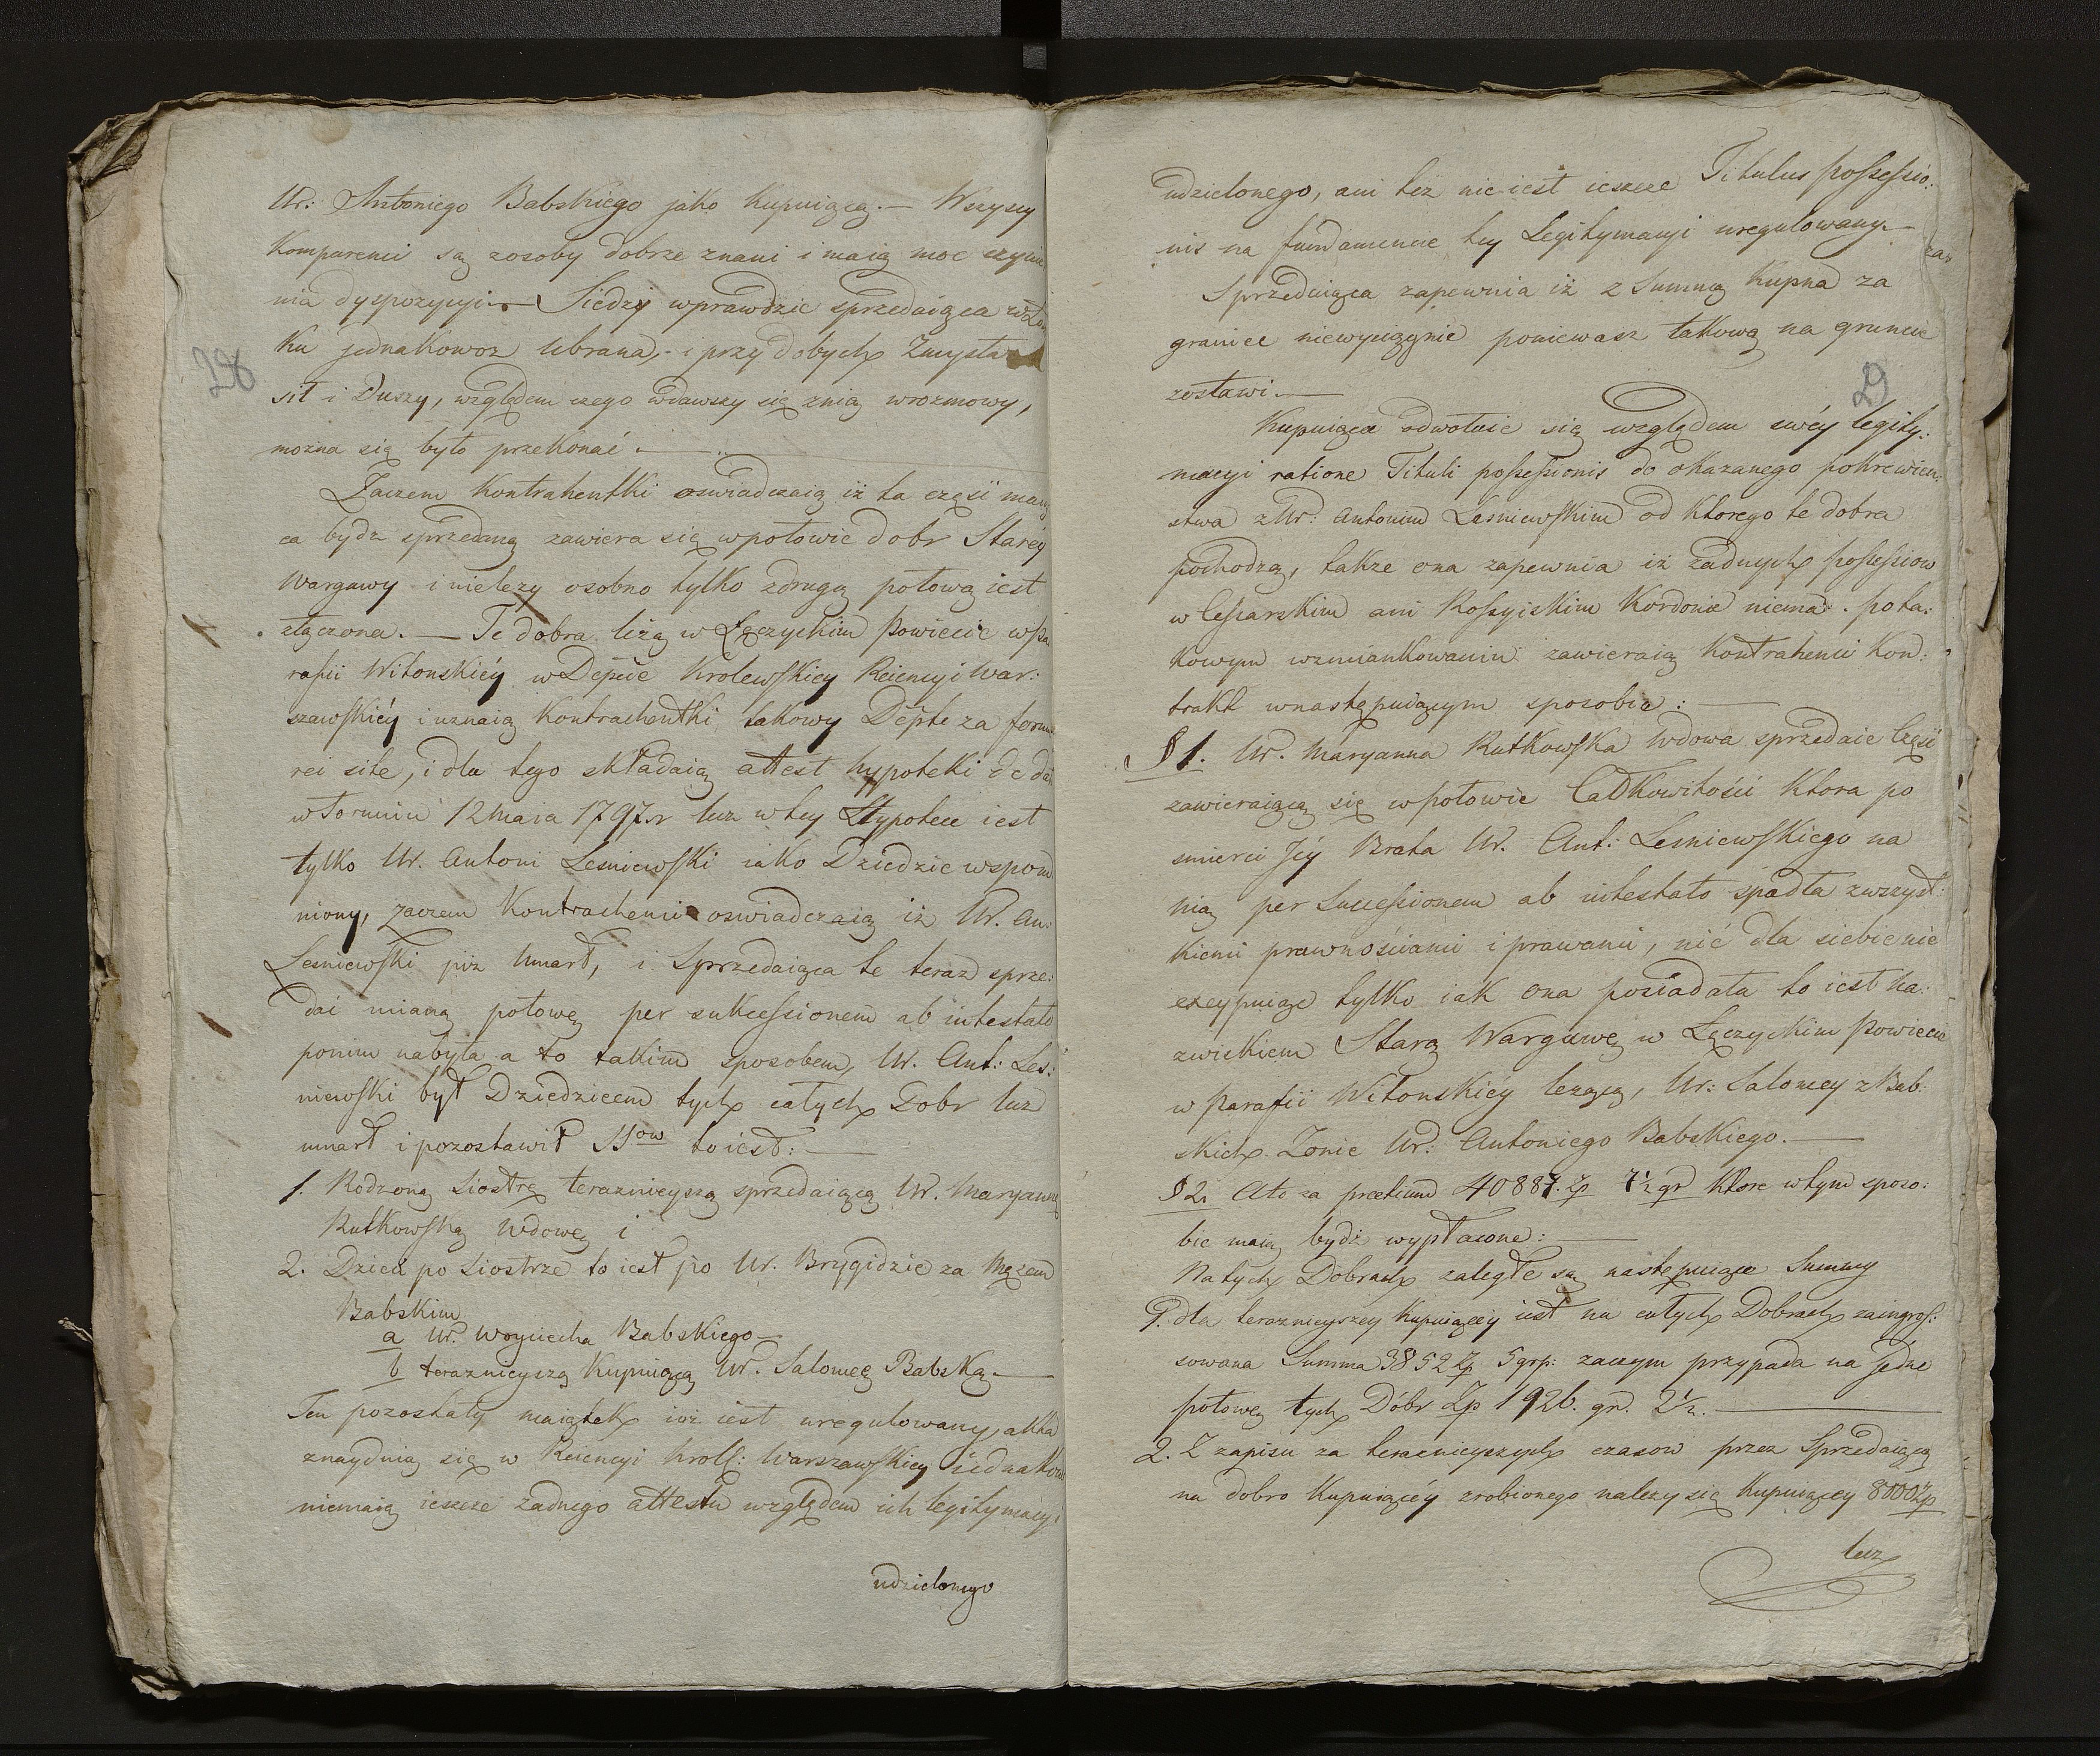 28
Ur: Antoniego Babskiego jako Kupuiącą. — Wszyscy
Komparenci są zosoby dobrze znani i maią moc czynie
nia dyspozycyi. — Siedzi wprawdzie sprzedaiąca
ku jednakowoz Ubrana, i przy dobych Zmysłach
sił i Duszy, względem czego wdawszy się znią wrozmowy,
mozna się było przekonać. —
Zaczem Kontrahentki oswiadczaią iż ta częsć maią
ca bydz sprzedaną zawiera się wpołowie dobr Starey
Wargawy i nielezy osobno tylko zdrugą połową iest
złączona. — Te dobra leżą w Łęczyckim Powiecie wPa
rafii Witonskiéy w Depcie Krolewskiey Reiencyi War:
szawskiéy i uznaią Kontrachentki takowy Depte za foru
rei site, i dla tego składaią attest hypoteki de da
wToruniu 12 Maia 1797.r lecz w tey Hypotece iest
tylko Ur. Antoni Lesniewski iako Dziedzic wspom
niony, zaczem Kontrachenci oswiadczaią iż Ur. An:
Lesniewski już Umarł, i Sprzedaiąca te teraz sprze:
dać mianą połowę per sukcessionem ab intestato
ponim nabyła a to takim sposobem, Ur. Ant: Les:
niewski był Dziedzicem tych całych Dobr lecz
umarł i pozostawił SSow to iest: —
1. Rodzoną Siostrę teraznieyszą sprzedaiącą Ur. Maryannę
Rutkowską Wdowę i
2. Dzieci po Siostrze to iest po Ur. Brygidzie za Mężem
Babskim
a Ur. Woyciecha Babskiego —
b teraznieyszą Kupuiącą Ur. Salomeę Babską. —
Ten pozostały maiątek iuż iest uregulowany, akta
znayduią się w Reiencyi Krols: Warszawskiey iednakow
niemaią ieszcze zadnego attestu względem ich legitymacyi
udzielonego
29
udzielonego, ani też nie iest ieszcze Titulus possessio:
nis na fundamencie tey Legitymacyi uregulowany. —
Sprzedaiąca zapewnia iż z Summą Kupna za
granice niewyciągnie poniewasz takową na gruncie
zostawi. —
Kupuiąca odwołuie się względem swéy legity:
macyi ratione Tituli possessionis do okazanego pokrewien:
stwa z Ur: Antonim Lesniewskim od ktorego te dobra
pochodzą, także ona zapewnia iż zadnych possessiow
w Cesarskim ani Rossyiskim Kordonie niema. po ta:
kowym wzmiankowaniu zawieraią Kontrahenci Kon:
trakt wnastępuiącym sposobie: —
§ 1. Ur. Maryanna Rutkowska Wdowa sprzedaie Część
zawieraiącą się wpołowie Całkowitości ktora po
smierci Jéy Brata Ur. Ant: Lesniewskiego na
nią per Successionem ab intestato spadła zwszyst:
kiemi prawnościami i prawami, nić dla siebie nie
excypuiąc tylko iak ona posiadała to iest na:
zwiskiem Starą Wargawę w Łęczyckim Powiecie
w Parafii Witonskiéy leżącą, Ur: Salomey z Bab:
skich Zonie Ur: Antoniego Babskiego. —
§ 2. Ato za pretium 40887. Zp 7½ gr ktore wtym sposo:
bie maią bydź wypłacone: —
Na tych Dobrach zaległe są następuiące Summy
1. dla teraznieyszey Kupuiącéy iest na całych Dobrach zaingros:
sowana Summa 3852 Zp 5 grp: zaczym przypada na jedne
połowę tych Dóbr Zp 1926. gr. 2½. —
2. Z zapisu za teraznieyszych czasow przez Sprzedaiącą
na dobro Kupuiącéy zrobionego nalezy się Kupuiącey 8000 Zp
lecz